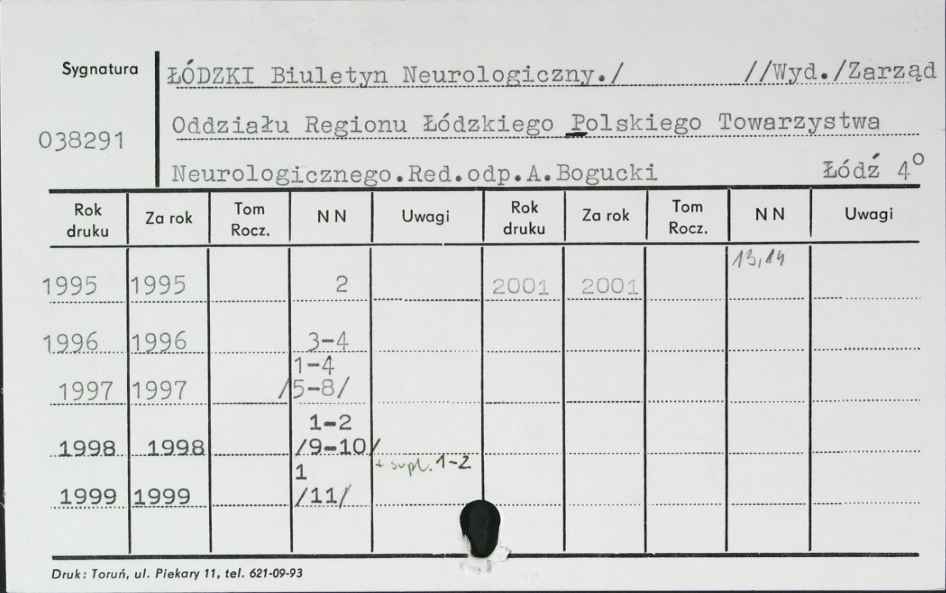 Sygnatura ŁÓDZKI Biuletyn Neurologiczny./ //Wyd./Zarząd
038291 Oddziału Regionu Łódzkiego Polskiego Towarzystwa
Neurologicznego.Red.odp.A.Bogucki Łódź 4°
Rok druku Za rok Tom Rocz. N N Uwagi Rok druku Za rok Tom Rocz. N N Uwagi
13,14
1995 1995 2 2001 2001
1996 1996 3-4
1-4
1997 1997 /5-8/
1-2
1998 1998 /9-10/
+ supl. 1-2
1
1999 1999 /11/
Druk: Toruń, ul. Piekary 11, tel. 621-09-93